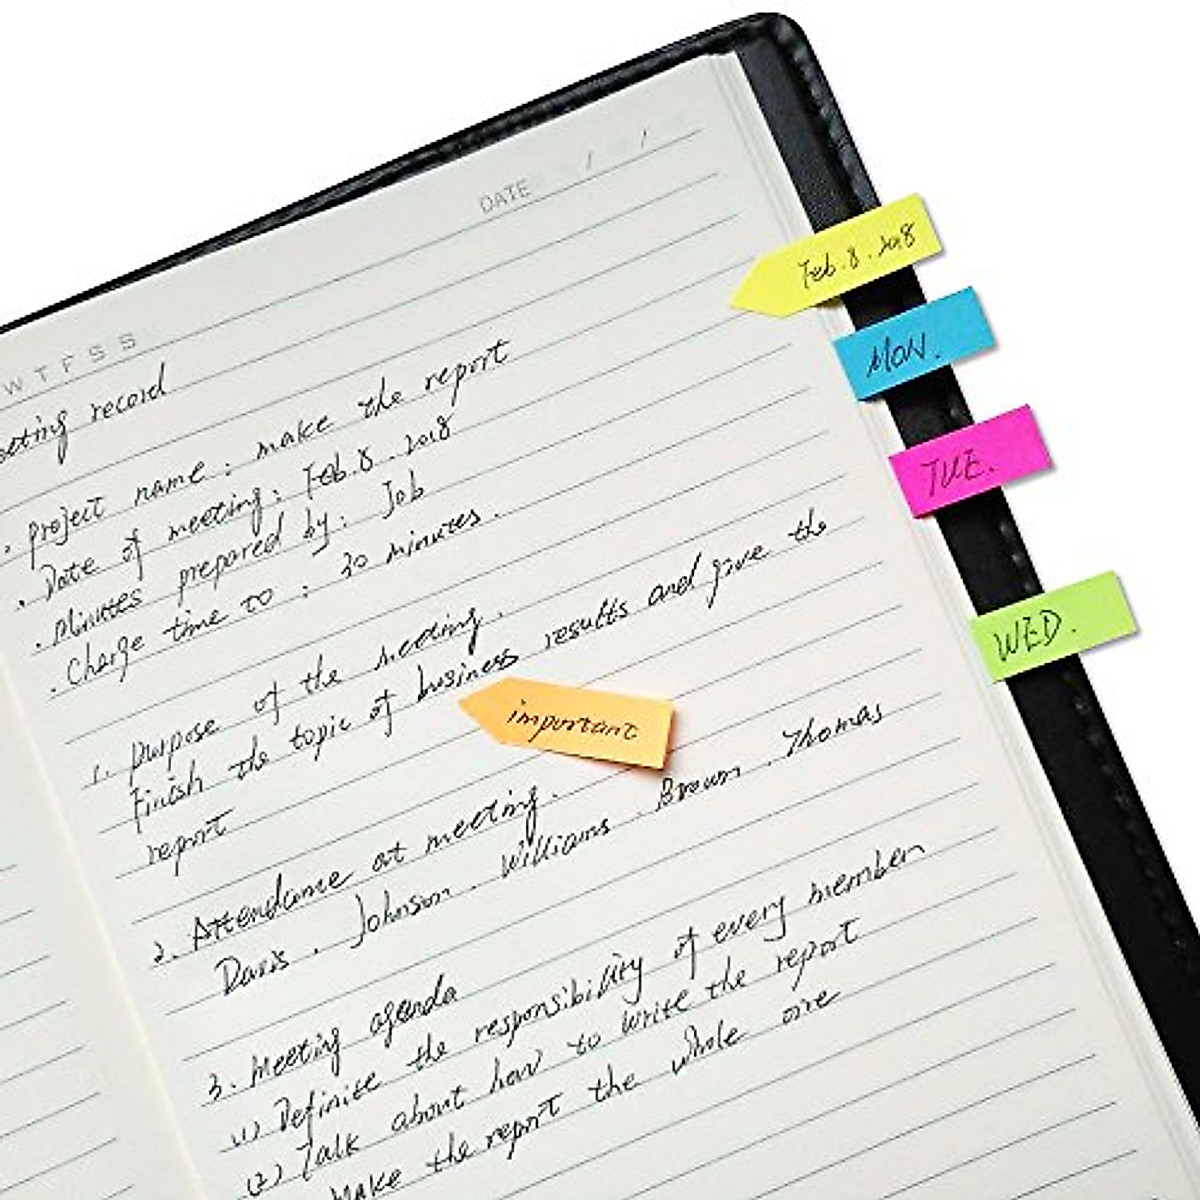 DATE / /
W T F S S
eeting record
. project name : make the report
. Date of meeting : Feb.8.2018
. Minutes prepared by : Job
. Charge time to : 30 minutes.
1. purpose of the meeting.
Finish the topic of business results and give the
report
2. Attendance at meeting.
Davis . Johnson . Williams . Brown . Thomas
3. Meeting agenda
(1) Definite the responsibility of every member
(2) Talk about how to write the report
Make the report the whole one
Feb.8.2018
MON.
TUE.
WED.
important